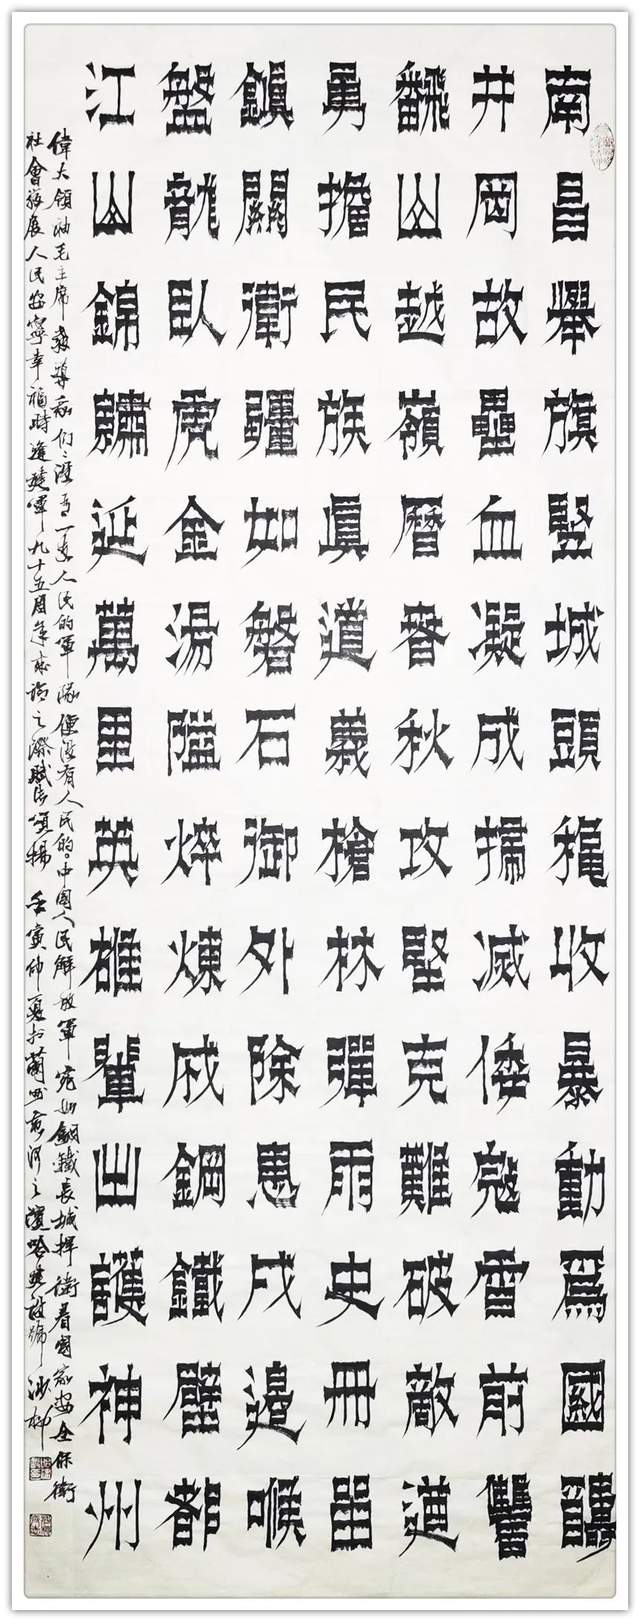 南昌舉旗竪城頭穐收暴動爲國
井岡故壘血凝成掃滅倭寇雪前讐
翻山越嶺曆春秋攻堅克難破敵道
勇擔民族眞道義槍林彈雨史冊畱
鎮關衛疆如磐石御外除患戍邊喉
盤龍臥虎金湯隘焠煉成鋼鐵壁都
江山錦繡延萬里英雄輩出護神州
偉大領袖毛主席教導我們：沒有一支人民的軍隊便沒有人民的。中國人民解放軍宛如鋼鐵長城捍衛着國家安全保衛
社會發展人民安寧幸福時逢建軍九十五周年來臨之際賦詩頌揚 壬寅仲夏於蘭州黃河之濱 沙柳